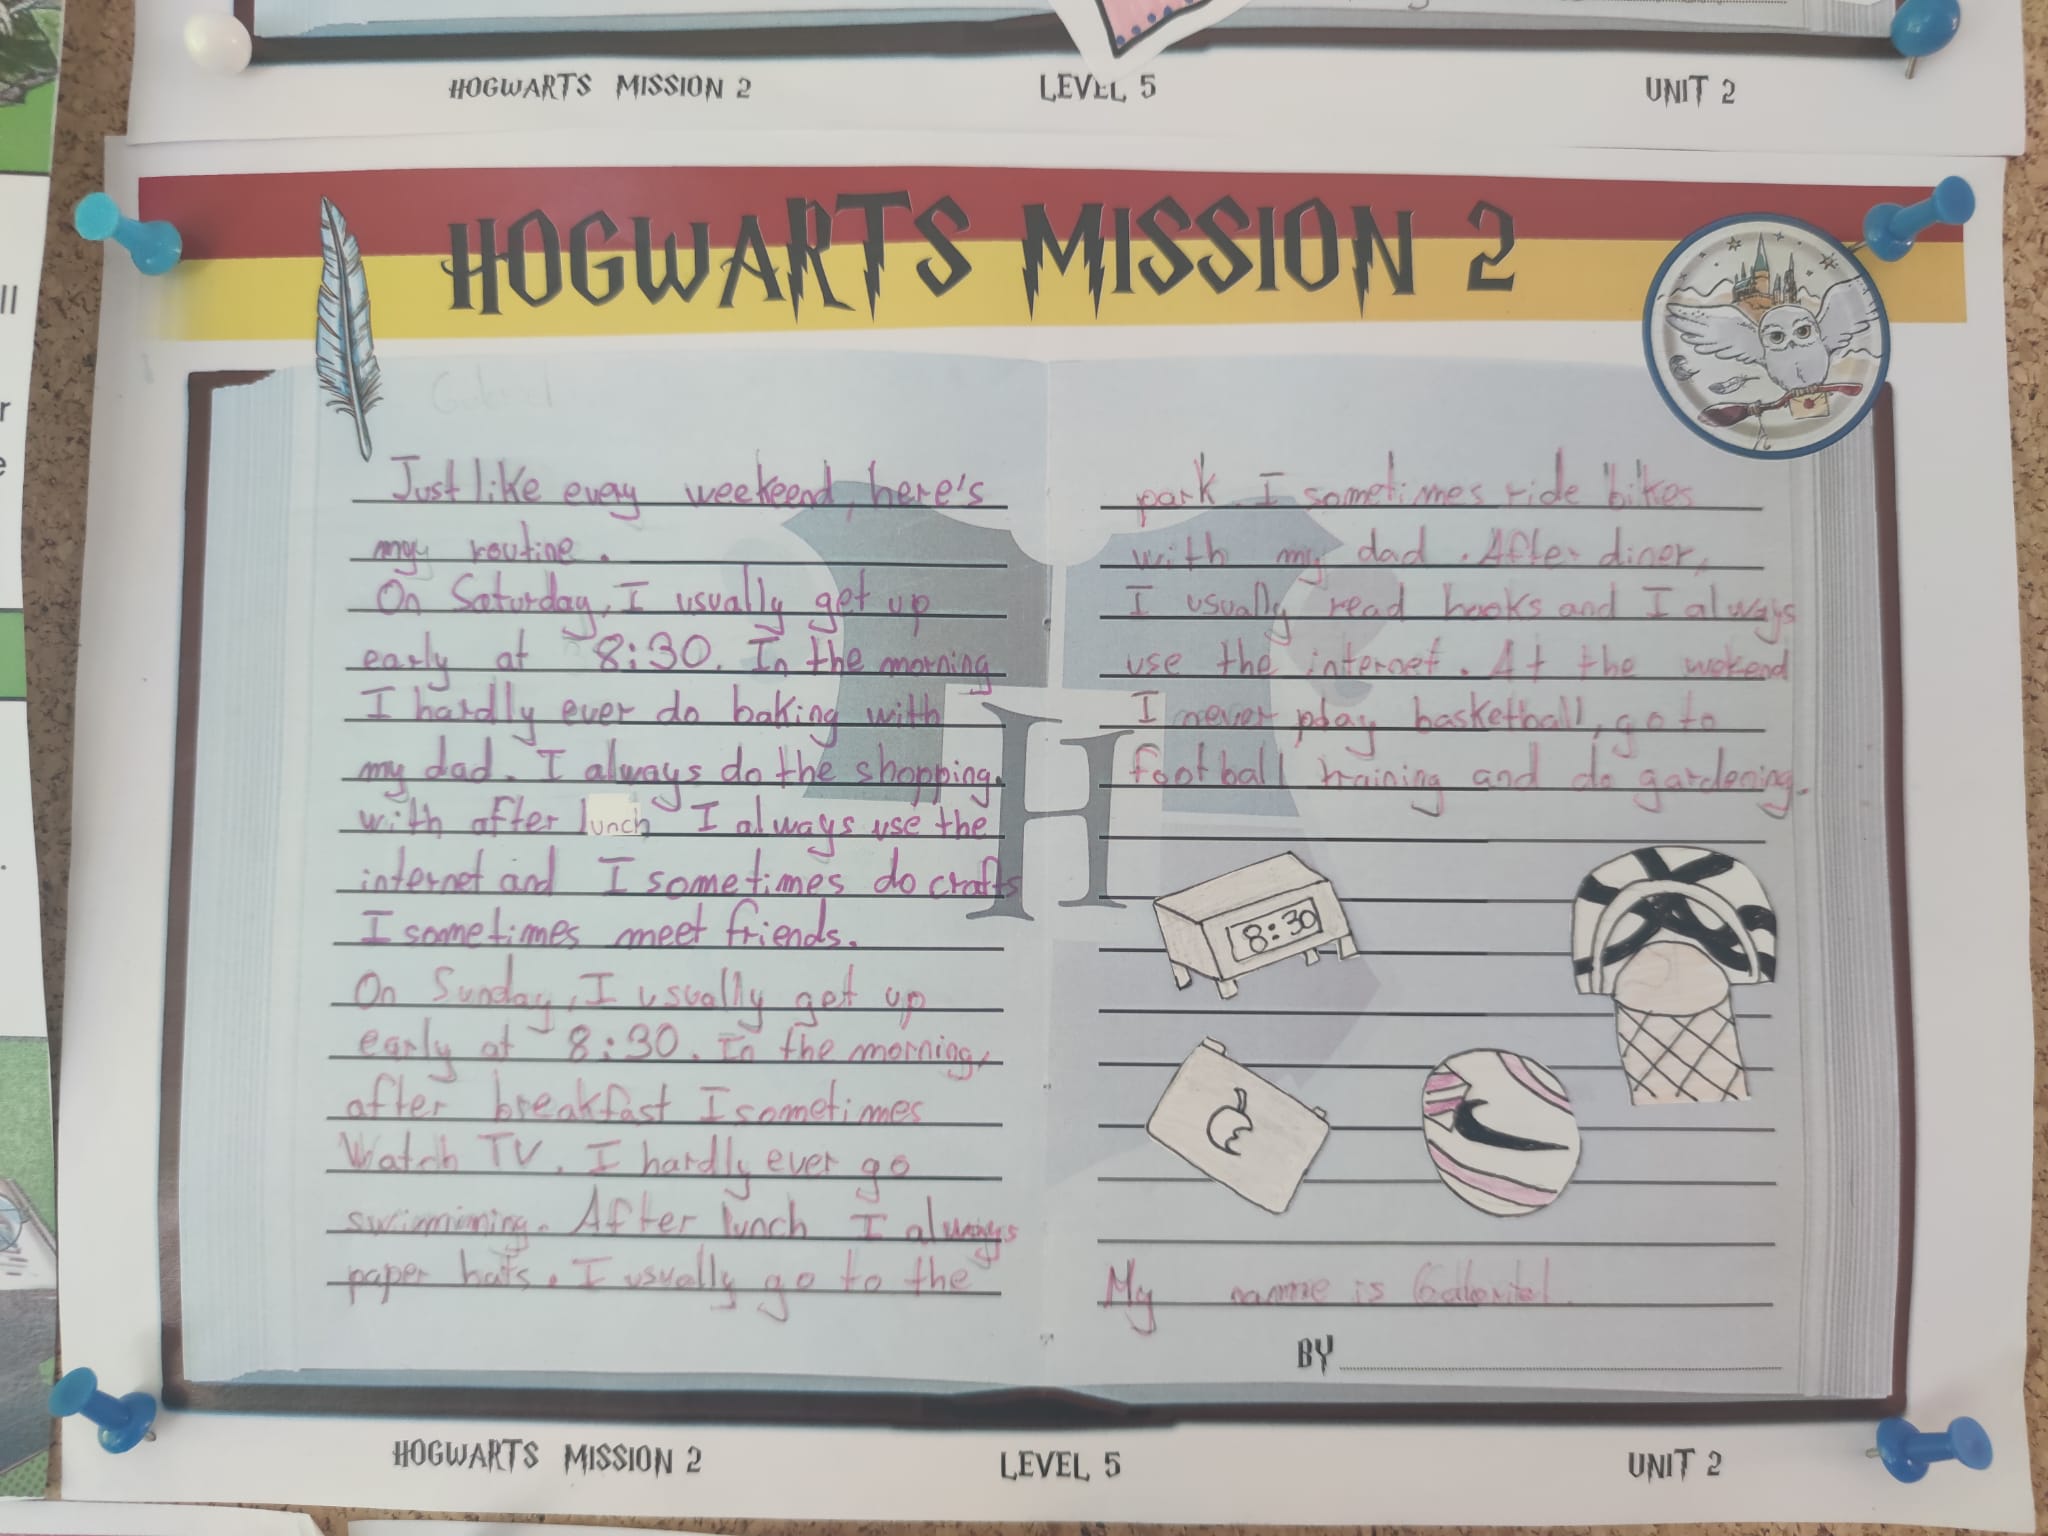 HOGWARTS MISSION 2 LEVEL 5 UNIT 2
HOGWARTS MISSION 2
Gabriel
Just like every weekeend, here's
my routine.
On Saturday, I usually get up
early at 8:30. In the morning
I hardly ever do baking with
my dad. I always do the shopping.
with after lunch I always use the
internet and I sometimes do crafts
I sometimes meet friends.
On Sunday, I usually get up
early at 8:30. In the morning,
after breakfast I sometimes
Watch TV. I hardly ever go
swimming. After lunch I always
paper hats. I usually go to the
park. I sometimes ride bikes
with my dad. After diner,
I usually read books and I always
use the internet. At the wekend
I never play basketball, go to
football training and do gardening.
8:30
My name is
BY
HOGWARTS MISSION 2 LEVEL 5 UNIT 2
ll
r
e